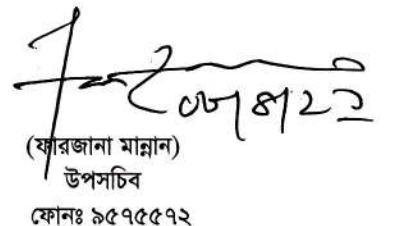 ০৮/৪/২১
(ফারজানা মান্নান)
উপসচিব
ফোনঃ ৯৫৭৫৫৭২